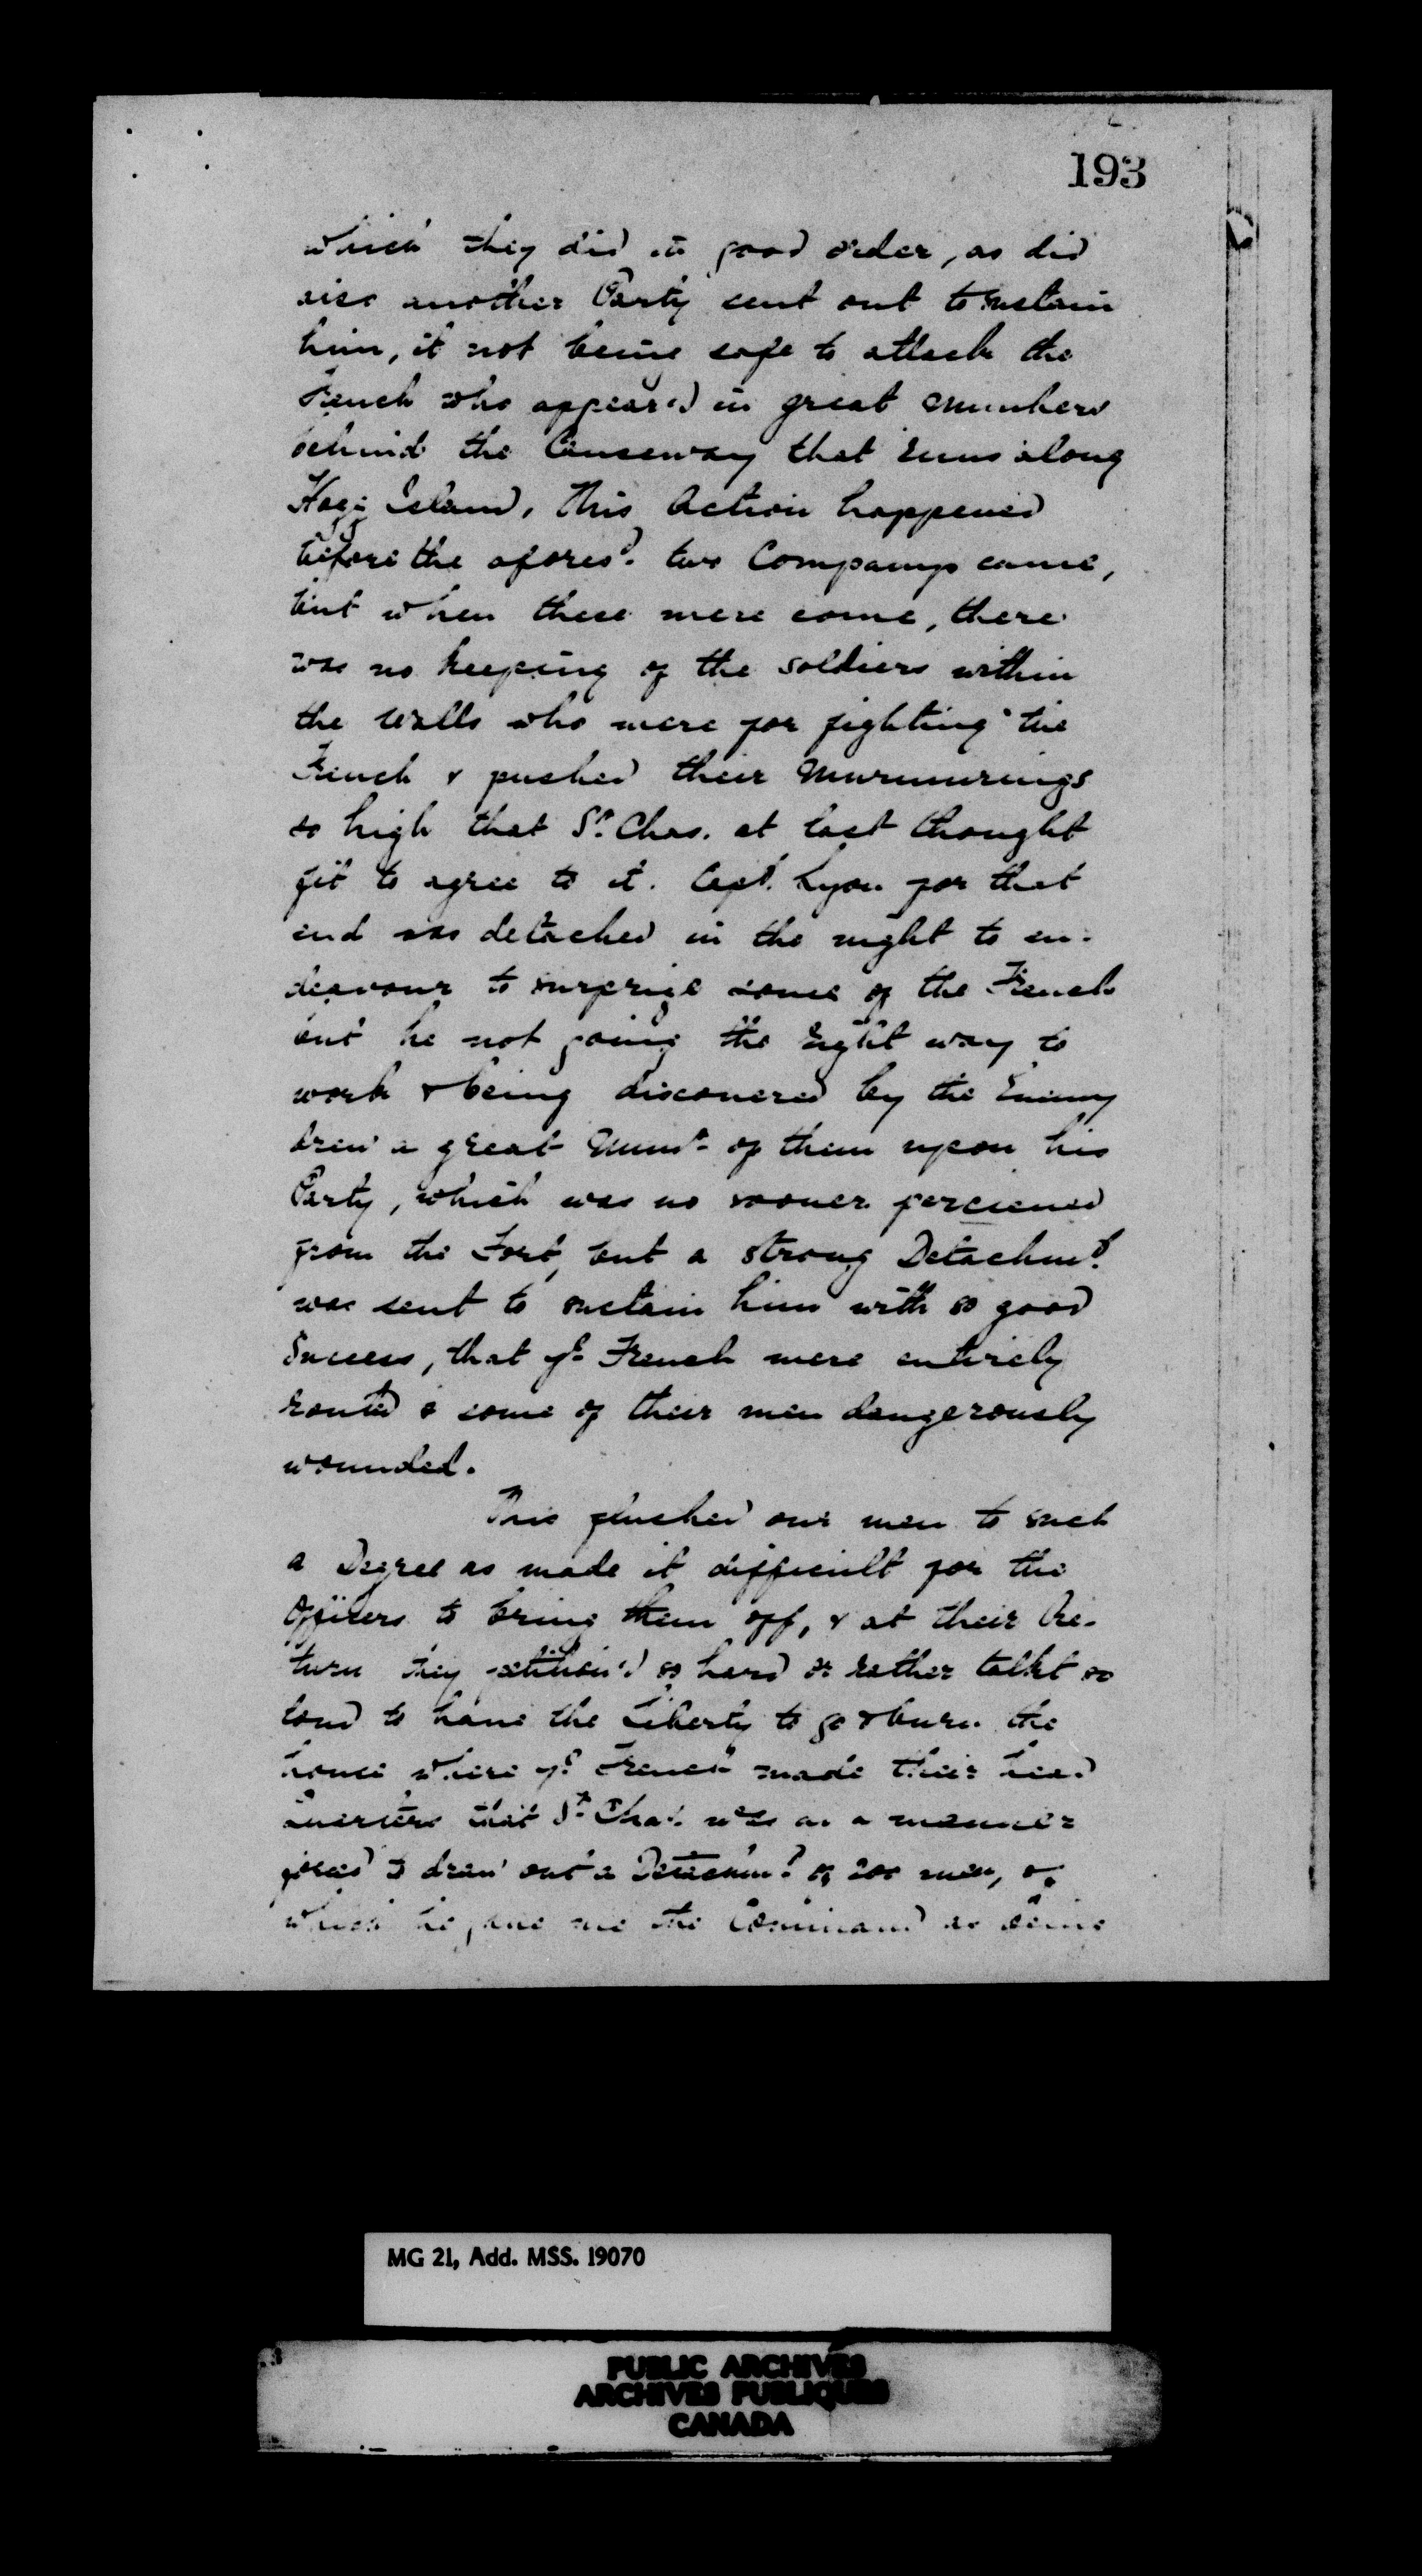 193
which they did in good order, as did
also another Party sent out to sustain
him, it not being safe to attack the
French who appear'd in great numbers
behind the Causeway that runs along
Hogg Island, This Action happened
before the afores'd. two Companys came,
but when these were come, there
was no keeping of the soldiers within
the Walls who were for fighting the
French & pushed their Murmurings
so high that Sr. Chas. at last thought
fit to agree to it. Capt. Lyon for that
end was detached in the night to en-
deavour to surprize some of the French
but he not going the right way to
work & being discovered by the Enemy
drew a great Numr. of them upon his
Party, which was no sooner perceived
from the Fort, but a strong Detachmt.
was sent to sustain him with so good
Success, that ye. French were entirely
routed & some of their men dangerously
wounded.
This flushed our men to such
a Degree as made it difficult for the
Officers to bring them off, & at their Re-
turn they petition'd so hard or rather talkt so
loud to have the Liberty to go & burn the
house where ye. French made their head
Quarters that Sr. Chas. was in a manner
forced to draw out a Detachmt. of 200 men, of
which he gave me the Command as being
MG 21, Add. MSS. 19070
PUBLIC ARCHIVES
ARCHIVES PUBLIQUES
CANADA